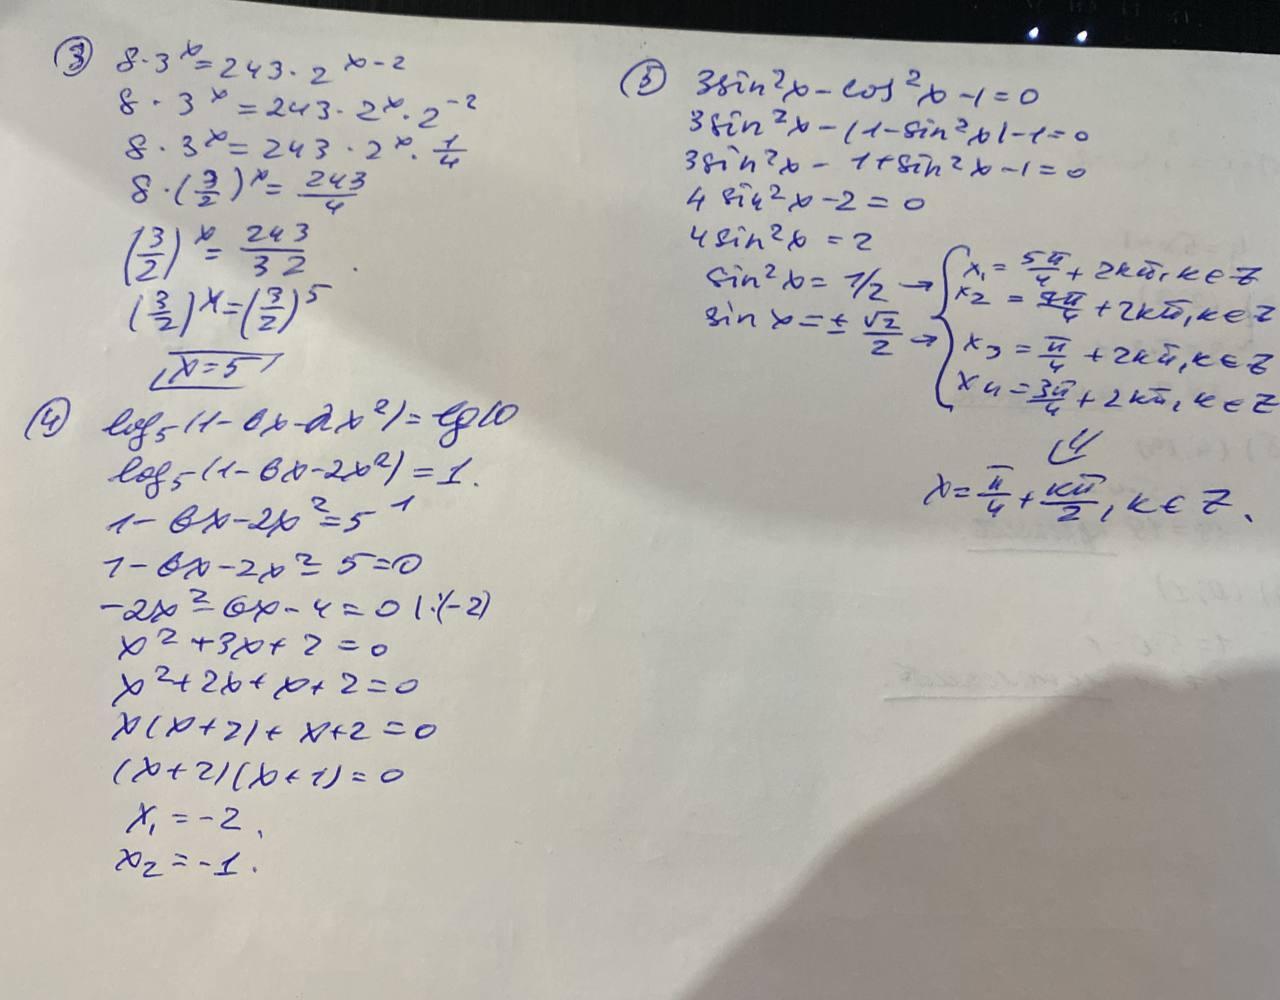 ③ 8·3^x=243·2^{x-2}
8·3^x=243·2^x·2^{-2}
8·3^x=243·2^x·1/4
8·(3/2)^x=243/4
(3/2)^x=243/32.
(3/2)^x=(3/2)^5
x=5
④ log₅(1-6x-2x²)=lg10
log₅(1-6x-2x²)=1.
1-6x-2x²=5¹
1-6x-2x²-5=0
-2x²-6x-4=0 |:(-2)
x²+3x+2=0
x²+2x+x+2=0
x(x+2)+x+2=0
(x+2)(x+1)=0
x₁=-2,
x₂=-1.
⑤ 3sin²x-cos²x-1=0
3sin²x-(1-sin²x)-1=0
3sin²x-1+sin²x-1=0
4sin²x-2=0
4sin²x=2
sin²x=1/2 →
sin x=±√2/2 →
{ x₁=5π/4+2kπ, k∈Z
x₂=7π/4+2kπ, k∈Z
x₃=π/4+2kπ, k∈Z
x₄=3π/4+2kπ, k∈Z
⇓
x=π/4+kπ/2, k∈Z.